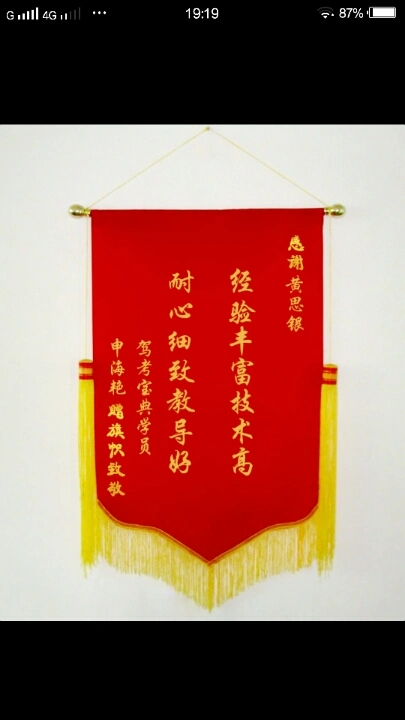 G 4G ··· 19:19 87%
感谢黄思银
经验丰富技术高
耐心细致教导好
驾考宝典学员
申海艳 赠旗帜致敬